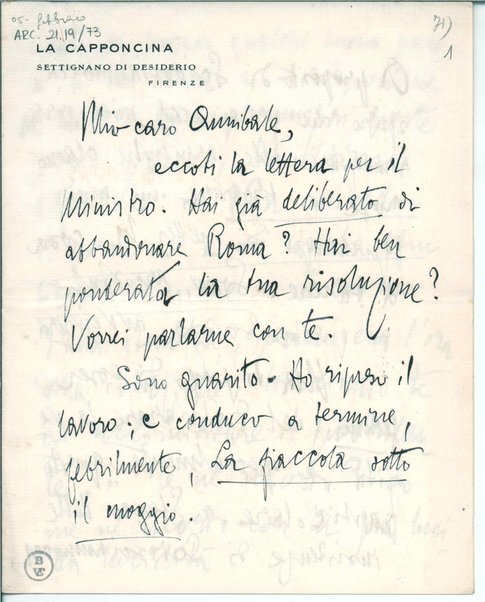 05- febbraio
ARC. 21.19/73
71)
1
LA CAPPONCINA
SETTIGNANO DI DESIDERIO
FIRENZE
Mio caro Annibale,
eccoti la lettera per il
Ministro. Hai già deliberato di
abbandonare Roma? Hai ben
ponderata la tua risoluzione?
Vorrei parlarne con te.
Sono guarito. Ho ripreso il
lavoro; e conduco a termine,
febrilmente, La fiaccola sotto
il moggio.